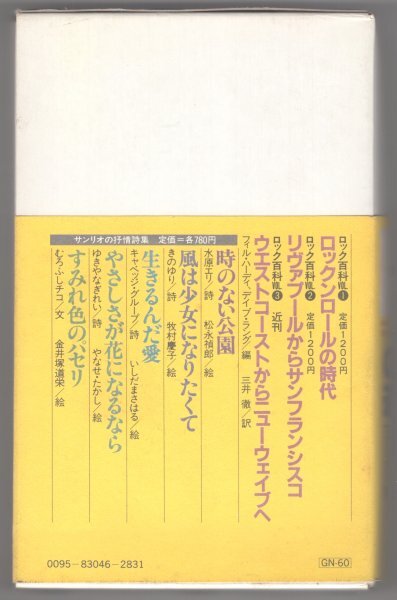 ロック百科VOL.1 定価1200円
ロックンロールの時代
ロック百科VOL.2 定価1200円
リヴァプールからサンフランシスコ
ロック百科VOL.3 近刊
ウエストコーストからニューウェイブへ
フィル・ハーディ、デイブ・ラング/編 三井 徹/訳
サンリオの抒情詩集 定価=各780円
時のない公園
水原エリ/詩 松永禎郎/絵
風は少女になりたくて
きのゆり/詩 牧村慶子/絵
生きるんだ愛
キャベッジ・グループ/詩 いしだまさはる/絵
やさしさが花になるなら
ゆきやなぎれい/詩 やなせ・たかし/絵
すみれ色のパセリ
むろふしチコ/文 金井塚道栄/絵
0095-83046-2831
GN-60